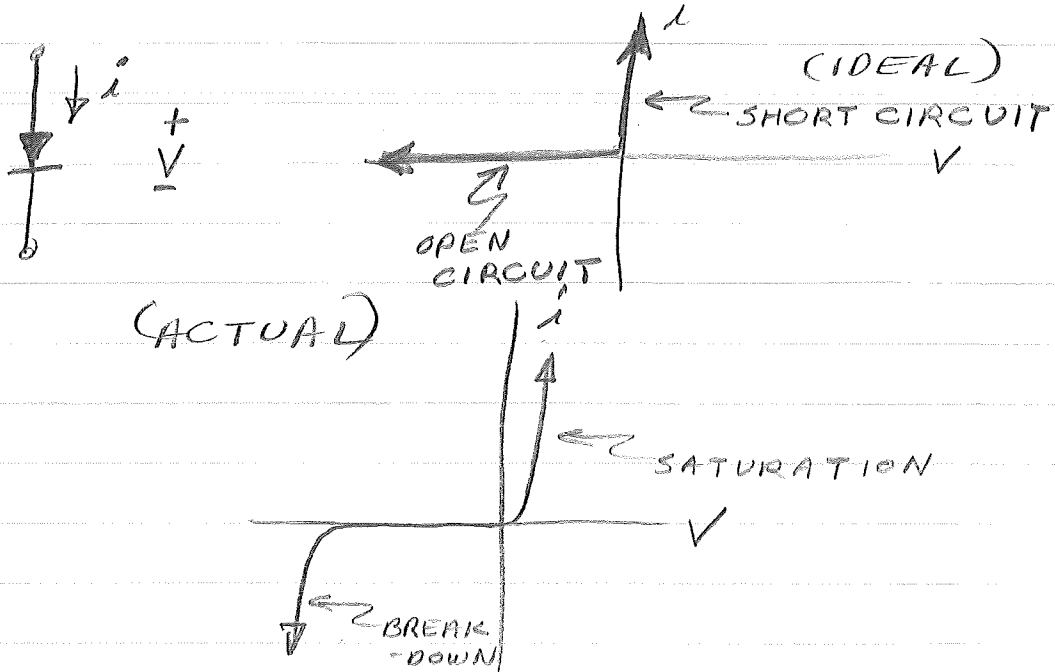 i
+
V
-
i
(IDEAL)
SHORT CIRCUIT
V
OPEN
CIRCUIT
(ACTUAL)
i
SATURATION
V
BREAK
-DOWN